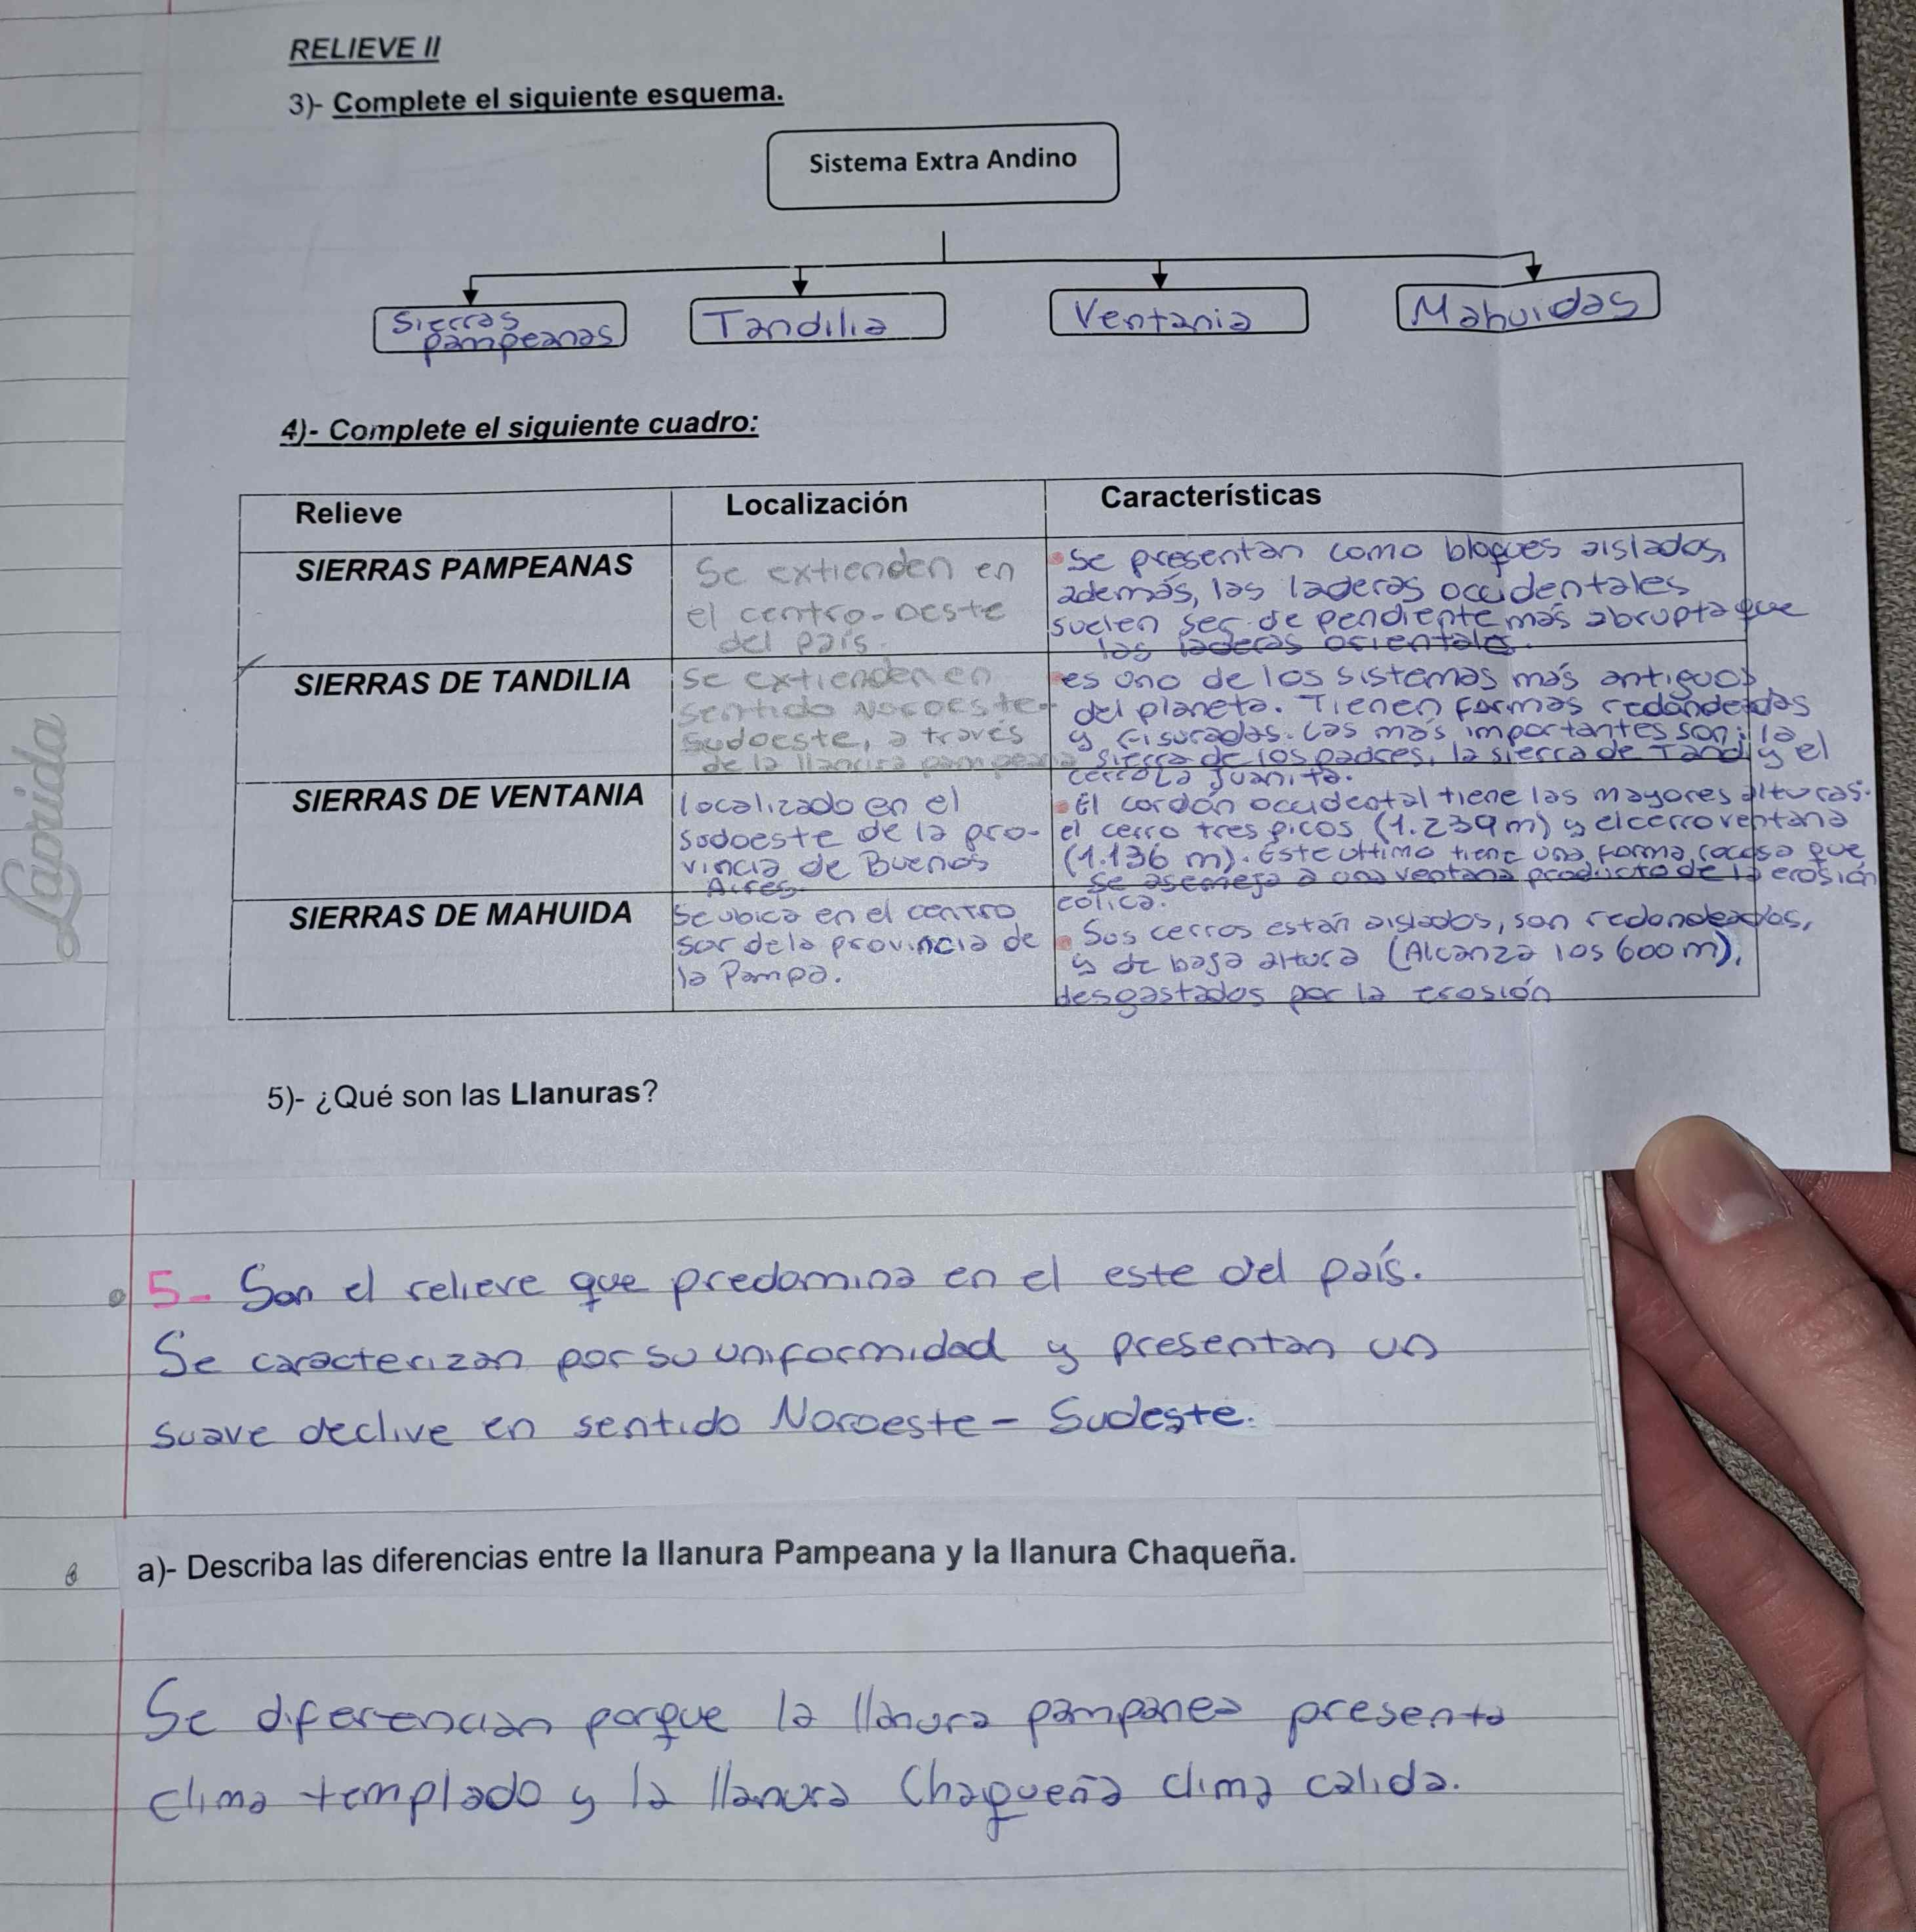 RELIEVE II
3)- Complete el siguiente esquema.
Sistema Extra Andino
Sierras
pampeanas
Tandilia
Ventania
Mahuidas
4)- Complete el siguiente cuadro:
Relieve
Localización
Características
SIERRAS PAMPEANAS
Se extienden en
el centro-oeste
del país.
Se presentan como bloques aislados,
además, las laderas occidentales
suelen ser de pendiente más abrupta que
las laderas orientales.
SIERRAS DE TANDILIA
Se extienden en
sentido Noroeste-
Sudoeste, a través
de la llanura pampeana
es uno de los sistemas más antiguos
del planeta. Tienen formas redondeadas
y fisuradas. Las más importantes son: la
sierra de los padres, la sierra de Tandil y el
cerro La Juanita.
SIERRAS DE VENTANIA
localizado en el
sudoeste de la pro-
vincia de Buenos
Aires.
El cordón occidental tiene las mayores alturas:
el cerro tres picos (1.239 m) y el cerro ventana
(1.136 m). Este último tiene una forma rocosa que
se asemeja a una ventana producto de la erosión
eólica.
SIERRAS DE MAHUIDA
Se ubica en el centro
sur de la provincia de
la Pampa.
Sus cerros están aislados, son redondeados,
y de baja altura (Alcanza los 600 m),
desgastados por la erosión
5)- ¿Qué son las Llanuras?
Laprida
5- Son el relieve que predomina en el este del país.
Se caracterizan por su uniformidad y presentan un
suave declive en sentido Noroeste - Sudeste.
a)- Describa las diferencias entre la llanura Pampeana y la llanura Chaqueña.
Se diferencian porque la llanura pampanea presenta
clima templado y la llanura Chaqueña clima calida.